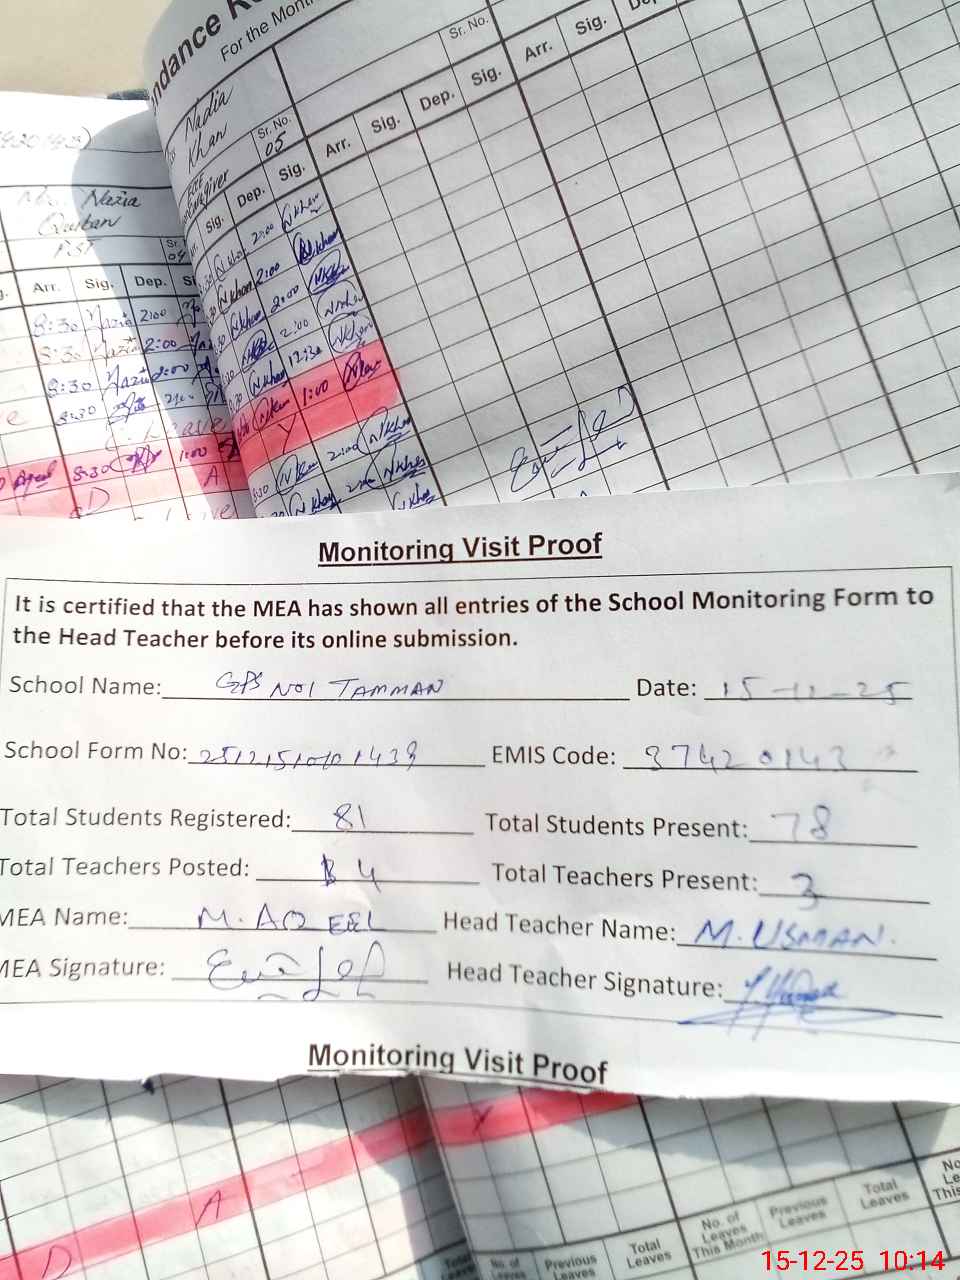 ndance R
For the Mont
Nadia
Khan
ECE
Caregiver
Sr. No.
05
Sr. No.
Arr. Sig. Dep. Sig. Arr. Sig. De
Sig. Dep. Sig.
2:00 N Khan
N Khan 2:00 N Khan
N Khan 2:00
2:00 N Khan
N Khan 12:30 N Khan
1:00
2:00 N Khan
N Khan
Nazia
Qurban
PST
Sr.
04
Arr. Sig. Dep. Si
8:30 Nazia 2:00
8:30 Nazia 2:00
8:30 Nazia 2:00
8:30
Leave
8:30 1:00
D A
Monitoring Visit Proof
It is certified that the MEA has shown all entries of the School Monitoring Form to
the Head Teacher before its online submission.
School Name: GPS NO1 TAMMAN Date: 15-12-25
School Form No: EMIS Code: 37420143
Total Students Registered: 81 Total Students Present: 78
Total Teachers Posted: 4 Total Teachers Present: 3
MEA Name: M. AQEEL Head Teacher Name: M. USMAN.
MEA Signature: Head Teacher Signature:
Monitoring Visit Proof
A
D
No. of
Leaves
Previous
Leaves
Total
Leaves
No. of
Leaves
This Month
Previous
Leaves
Total
Leaves
No
Le
This
15-12-25 10:14